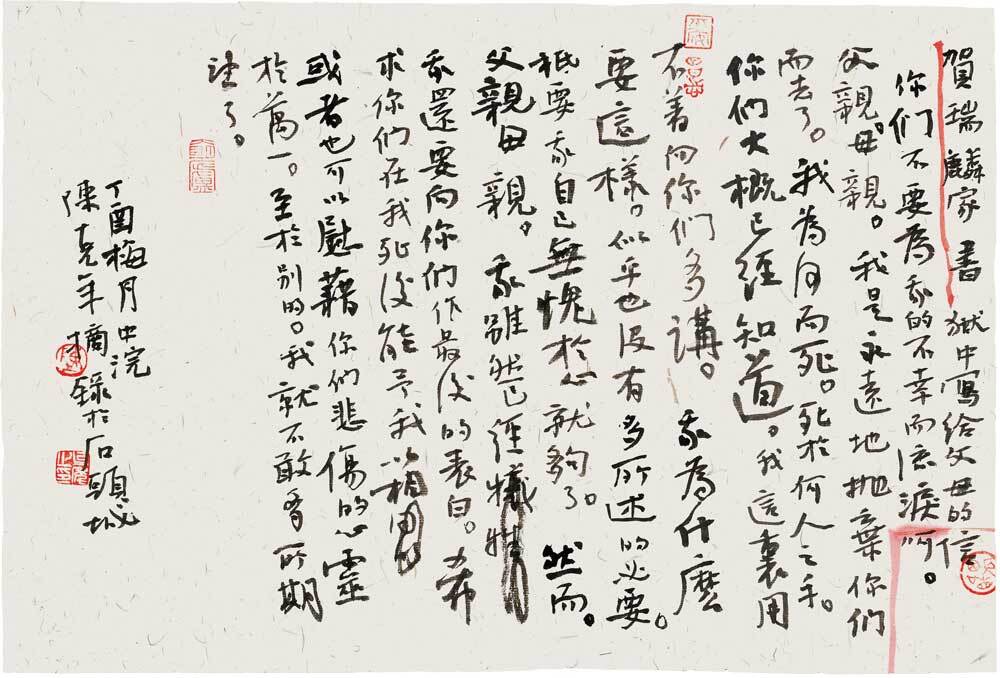 賀瑞麟家書 獄中寫給父母的信
你們不要為我的不幸而流淚呵。
父親。母親。我是永遠地拋棄你們
而去了。我為何而死。死於何人之手。
你們大概已經知道。我這裏用
不着向你們多講。我為什麼
要這樣。似乎也沒有多所述的必要。
祗要我自己無愧於心就夠了。然而。
父親母親。我雖然已經犧牲
我還要向你們作最後的表白。希
求你們在我死後能予我以相
或者也可以慰藉你們悲傷的心靈
於萬一。至於別的。我就不敢多所期
望了。
丁酉梅月中浣
陳克年摘錄於石頭城